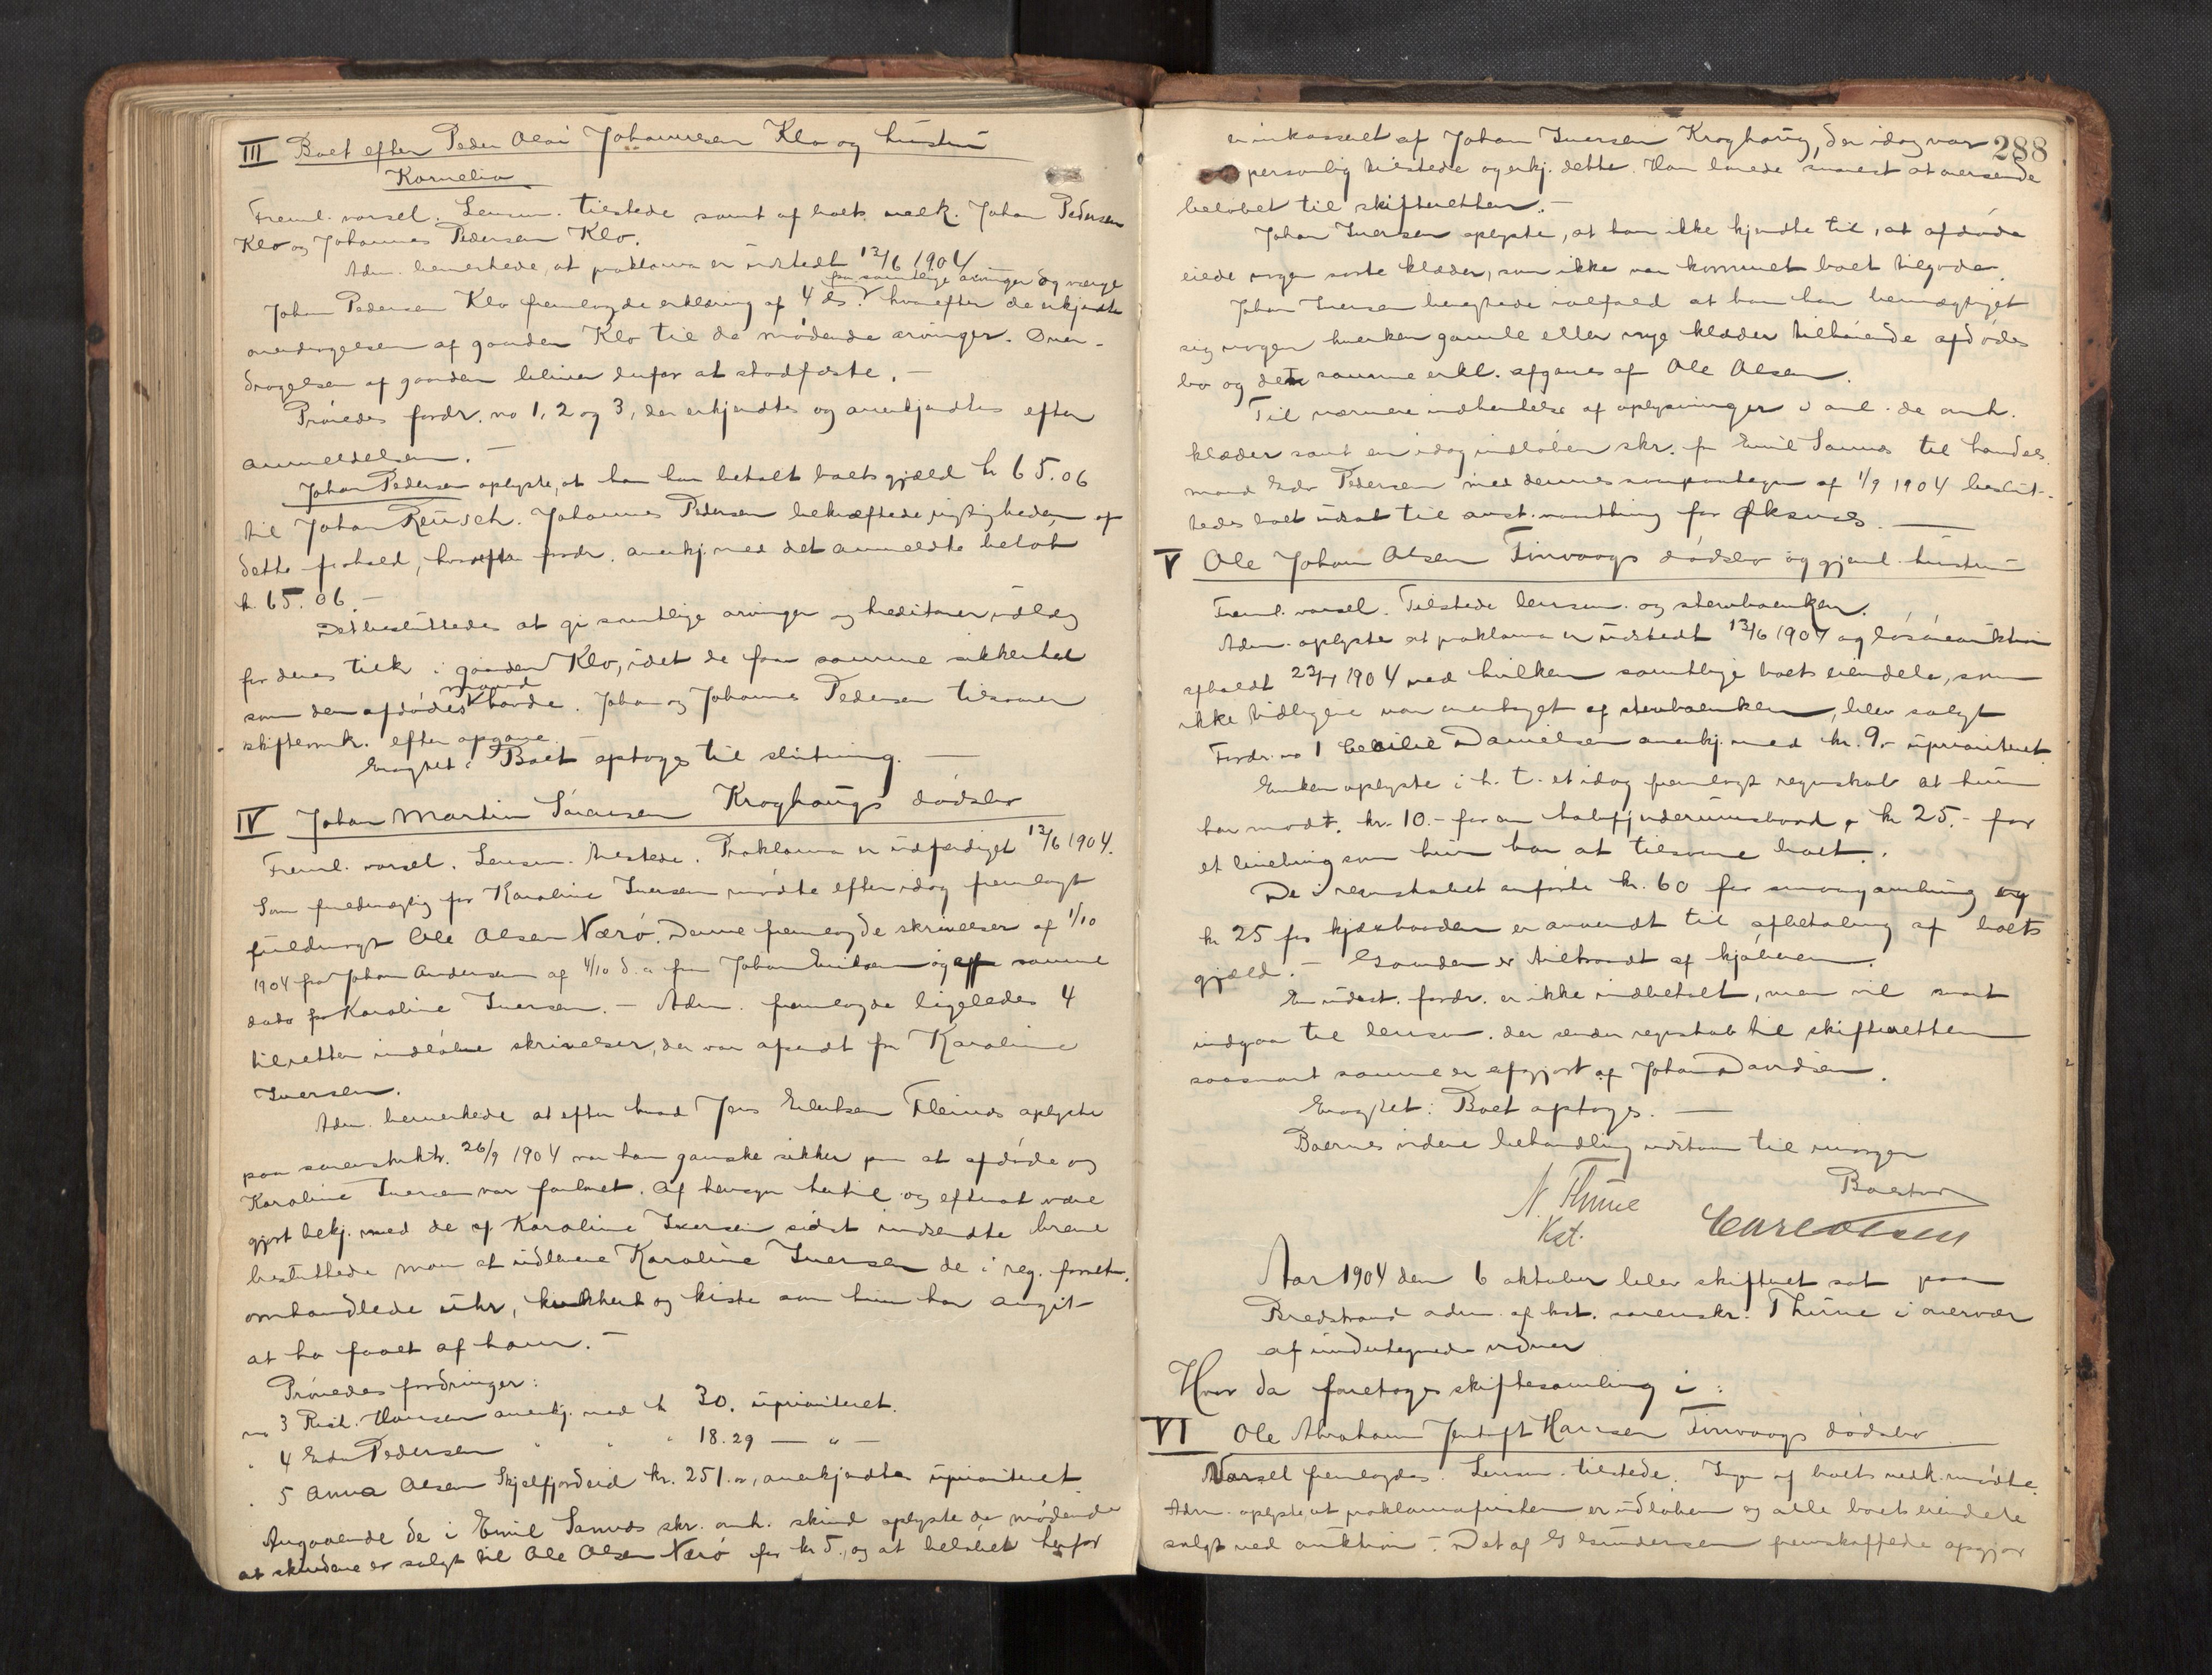 III Boet efter Peder Olai Johannesen Klo og hustru
Kornelia
Freml. varsel. Lensm. tilstede samt af boets vedk. Johan Pedersen
Klo og Johannes Pedersen Klo.
Adm. bemerkede, at proklama er udstedt 13/6 1904
fra samtlige arvinger og værge
Johan Pedersen Klo fremlagde erklæring af 4 ds. hvorefter de erkjendte
overdragelsen af gaarden Klo til de mødende arvinger. Over-
dragelsen af gaarden bliver derfor at stadfæste. —
Prøvedes fordr. no 1, 2 og 3, der erkjendtes og anerkjendtes efter
anmeldelsen. —
Johan Pedersen oplyste, at han har betalt boets gjæld kr 65.06
til Johan Reusch. Johannes Pedersen bekræftede rigtigheden af
dette forhold, hvorefter fordr. anerkj. med det anmeldte beløb
kr. 65.06. —
Det besluttedes at gi samtlige arvinger og kreditorer udlæg
for deres tilk. i gaarden Klo, idet de faar samme sikkerhed
mand
som den afdødes havde. Johan og Johannes Pedersen tilsvarer
skifteomk. efter opgave.
Eragtet: Boet optoges til slutning. —
IV Johan Martin Sørensen Kroghaugs dødsbo
Freml. varsel. Lensm. tilstede. Proklama er udfærdiget 13/6 1904.
Som fuldmægtig for Karoline Iversen mødte efter idag fremlagt
fuldmagt Ole Olsen Nærø. Denne fremlagde skrivelser af 1/10
1904 fra Johan Andersen af 4/10 d. a. fra Johan Eriksen og af samme
dato fra Karoline Iversen. — Adm. fremlagde ligeledes 4
til retten indløbne skrivelser, der var afsendt fra Karoline
Iversen.
Adm. bemerkede at efter hvad Jens Eileksen Fleines oplyste
paa sorenskrk. 26/9 1904 var han ganske sikker paa at afdøde og
Karoline Iversen var forlovet. Af hensyn hertil og efterat være
gjort bekj. med de af Karoline Iversen sidst indsendte breve
besluttede man at udlevere Karoline Iversen de i reg. forret.
omhandlede uhr, og kiste som hun har angit
at ha faaet af ham. —
Prøvedes fordringer:
no 3 Rist. Hansen anerkj. med kr 30. uprioriteret.
" 4 Edv Pedersen " " " 18.29 — " —
" 5 Anna Olsen Skjelfjordeid kr. 251.00, anerkjendtes uprioriteret
Angaaende de i Emil Sannes skr. omh. skind oplyste de mødende
at skindene er solgt til Ole Olsen Nærø for kr 5., og at beløbet herfor
288
er inkasseret af Johan Iversen Kroghaug, der idag var
personlig tilstede og erkj. dette. Han lovede snarest at oversende
beløbet til skifteretten. —
Johan Iversen oplyste, at han ikke kjendte til, at afdøde
eiede nogen sorte klæder, som ikke var kommet boet tilgode.
Johan Iversen benegtede ialfald at han har bemægtiget
sig nogen hverken gamle eller nye klæder tilhørende afdødes
bo og den samme erkl. afgaves af Ole Olsen.
Til nærmere indhentelse af oplysninger i anl. de omh.
klæder samt en idag indløben skr. fra Emil Sannes til handels
mand Edv Pedersen med dennes af 1/9 1904 beslut-
tedes boet udsat til anst. samling for Øksnes. —
V Ole Johan Olsen Finvaags dødsbo og gjenl. hustru
Freml. varsel. Tilstede lensm. og stervboenken.
Adm. oplyste at proklama er udstedt 13/6 1904 og løsøreauktion
afholdt 22/4 1904 ved hvilken samtlige boets eiendele, som
ikke tidligere var overtaget af stervboenken, blev solgt
Fordr. no 1 Cecilie Danielsen anerkj. med kr. 9.– uprioriteret.
Enken oplyste i h. t. et idag fremlagt regnskab at hun
har modt. kr. 10.– for en halvfjerderumsbaad, kr 25.– for
et som hun har at tilsvare boet.
De i regnskabet anførte kr. 60 for og
kr 25 for er anvendt til afbetaling af boets
gjæld. — Gaarden er af kjøberen.
En udest. fordr. er ikke indbetalt, men vil snart
indgaa til lensm. der sender regnskab til skifteretten
saasnart samme er afgjort af Johan Davidsen.
Eragtet: Boet optoges. —
Boernes videre behandling udstaar til imorgen
N. Thune
Kst.
Carl Olsen
Aar 1904 den 6 oktober blev skifteret sat paa
Bredstrand adm. af kst. sorenskr. Thune i overvær
af undertegnede vidner
Hvor da foretoges skiftesamling i:
VI Ole Abraham Jentoft Hansen Finvaags dødsbo
Varsel fremlagdes. Lensm. tilstede. Ingen af boets vedk. mødte.
Adm. oplyste, at proklamafristen er udløben og alle boets eiendele
solgt ved auktion. – Det af G Gundersen fremskaffede opgjør